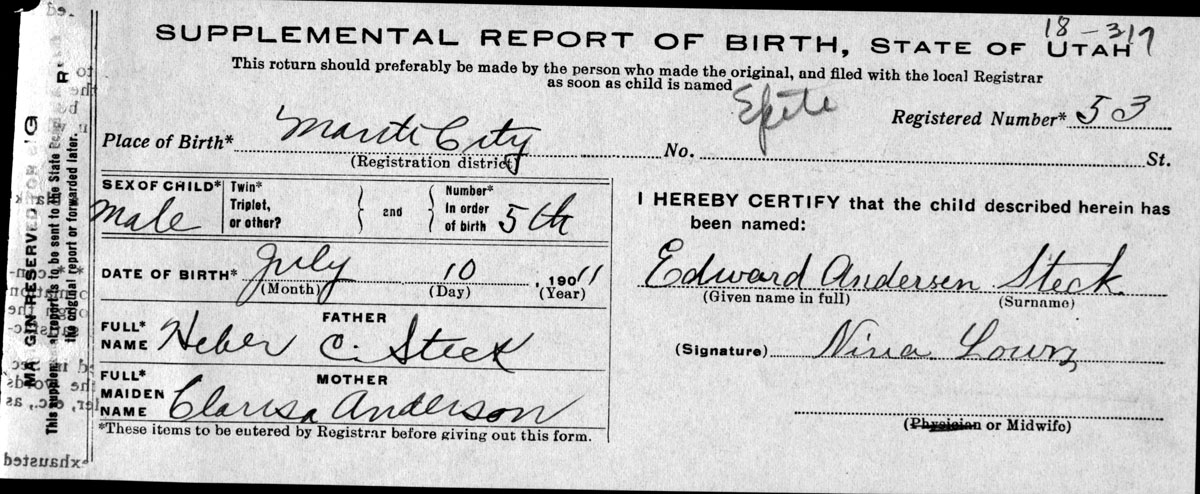 18-317
SUPPLEMENTAL REPORT OF BIRTH, STATE OF UTAH
This return should preferably be made by the person who made the original, and filed with the local Registrar
as soon as child is named
Registered Number* 53
Place of Birth* Manti City No. St.
(Registration district)
SEX OF CHILD* Male
Twin* Triplet, or other?
and
Number* In order of birth 5th
DATE OF BIRTH* July 10, 1911
(Month) (Day) (Year)
FATHER
FULL* NAME Heber C. Steck
MOTHER
FULL* MAIDEN NAME Clarisa Anderson
*These items to be entered by Registrar before giving out this form.
I HEREBY CERTIFY that the child described herein has
been named:
Edward Andersen Steck
(Given name in full) (Surname)
(Signature) Nina Lowry
(Physician or Midwife)
MARGIN RESERVED FOR
This supplemental report is to be sent to the State
the original report or forwarded later.